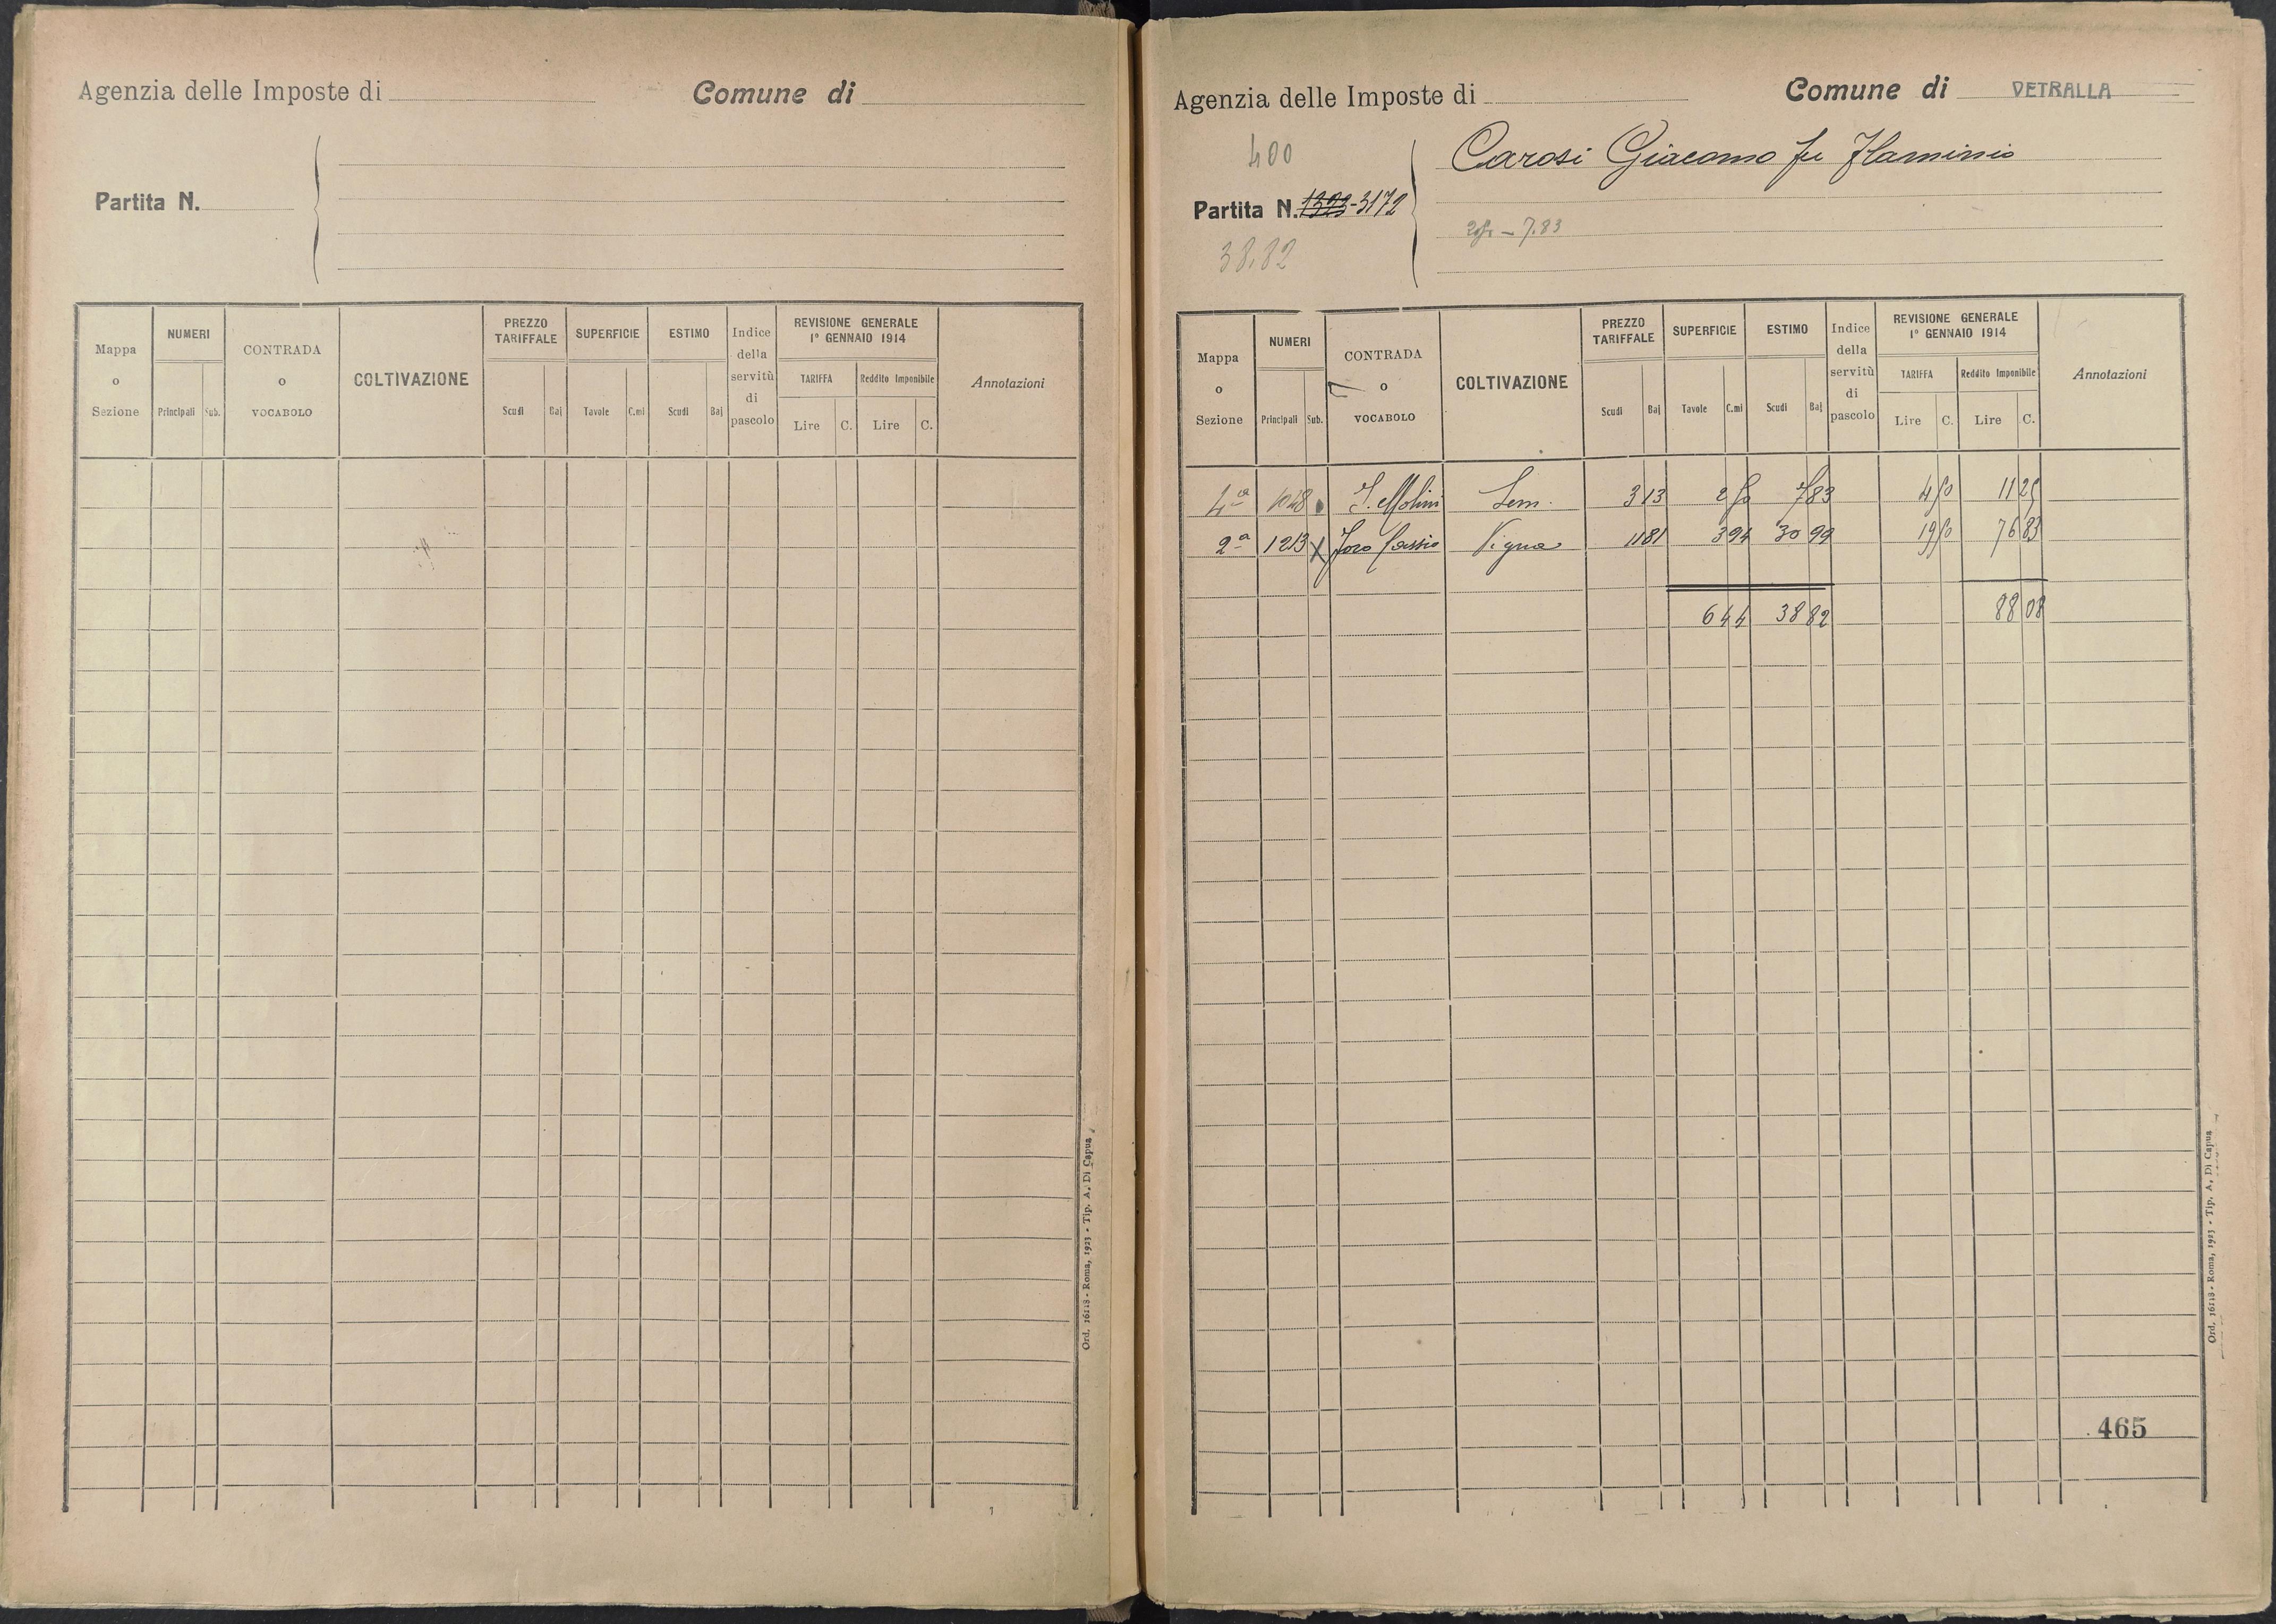 Agenzia delle Imposte di
Comune di
Partita N.
Mappa o Sezione
NUMERI
Principali
Sub.
CONTRADA o VOCABOLO
COLTIVAZIONE
PREZZO TARIFFALE
Scudi
Baj
SUPERFICIE
Tavole
C.mi
ESTIMO
Scudi
Baj
Indice della servitù di pascolo
REVISIONE GENERALE
1° GENNAIO 1914
TARIFFA
Reddito Imponibile
Lire
C.
Lire
C.
Annotazioni
Ord. 16118 - Roma, 1923 - Tip. A. Di Capua
Agenzia delle Imposte di
Comune di VETRALLA
400
Carosi Giacomo fu Flaminio
Partita N. 3172
7.83
38.82
Mappa o Sezione
NUMERI
Principali
Sub.
CONTRADA o VOCABOLO
COLTIVAZIONE
PREZZO TARIFFALE
Scudi
Baj
SUPERFICIE
Tavole
C.mi
ESTIMO
Scudi
Baj
Indice della servitù di pascolo
REVISIONE GENERALE
1° GENNAIO 1914
TARIFFA
Reddito Imponibile
Lire
C.
Lire
C.
Annotazioni
4ª 1048 Molini Sem. 3 13 2 50 7 83 4 50 11 25
2ª 1213 Foro Cassio Vigna 11 81 3 94 30 99 19 50 76 83
6 44 38 82 88 08
465
Ord. 16118 - Roma, 1923 - Tip. A. Di Capua